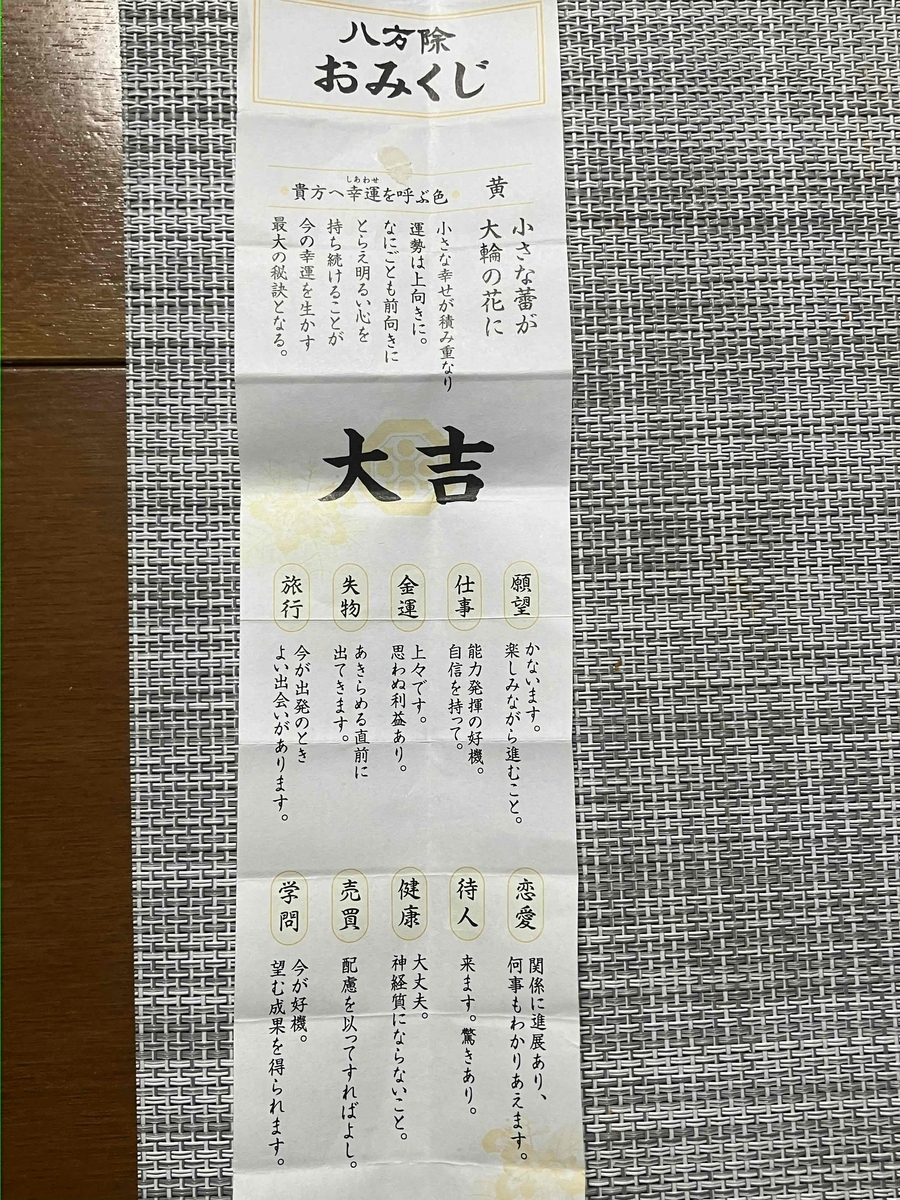 八方除
おみくじ
貴方へ幸運を呼ぶ色
しあわせ
黄
小さな蕾が
大輪の花に
小さな幸せが積み重なり
運勢は上向きに。
なにごとも前向きに
とらえ明るい心を
持ち続けることが
今の幸運を生かす
最大の秘訣となる。
大吉
願望
かないます。
楽しみながら進むこと。
仕事
能力発揮の好機。
自信を持って。
金運
上々です。
思わぬ利益あり。
失物
あきらめる直前に
出てきます。
旅行
今が出発のとき
よい出会いがあります。
恋愛
関係に進展あり、
何事もわかりあえます。
待人
来ます。驚きあり。
健康
大丈夫。
神経質にならないこと。
売買
配慮を以ってすればよし。
学問
今が好機。
望む成果を得られます。